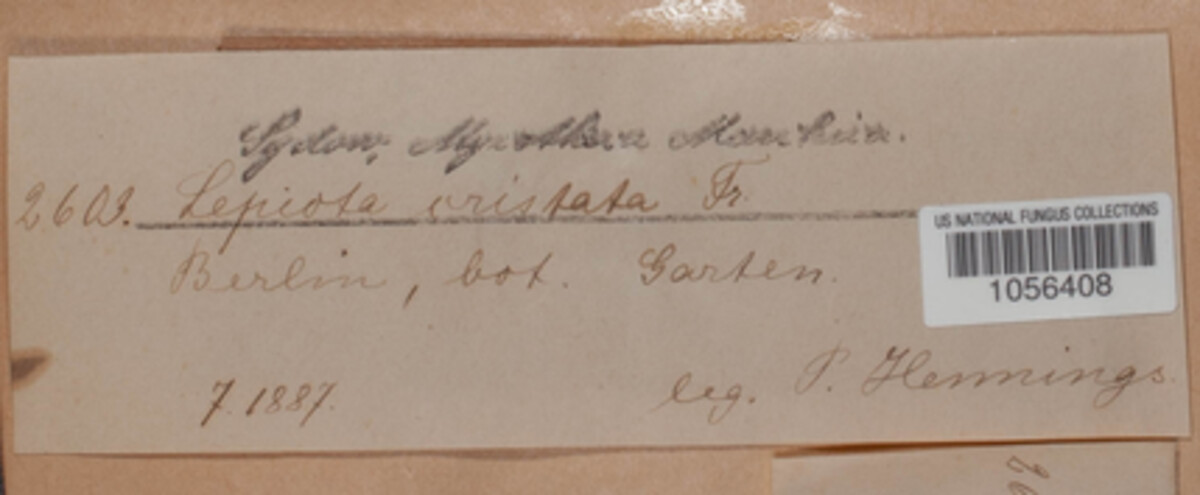 Sydow, Mycotheca Marchica.
2603. Lepiota cristata Fr.
Berlin, bot. Garten.
US NATIONAL FUNGUS COLLECTIONS
1056408
7. 1887.
leg. P. Hennings.